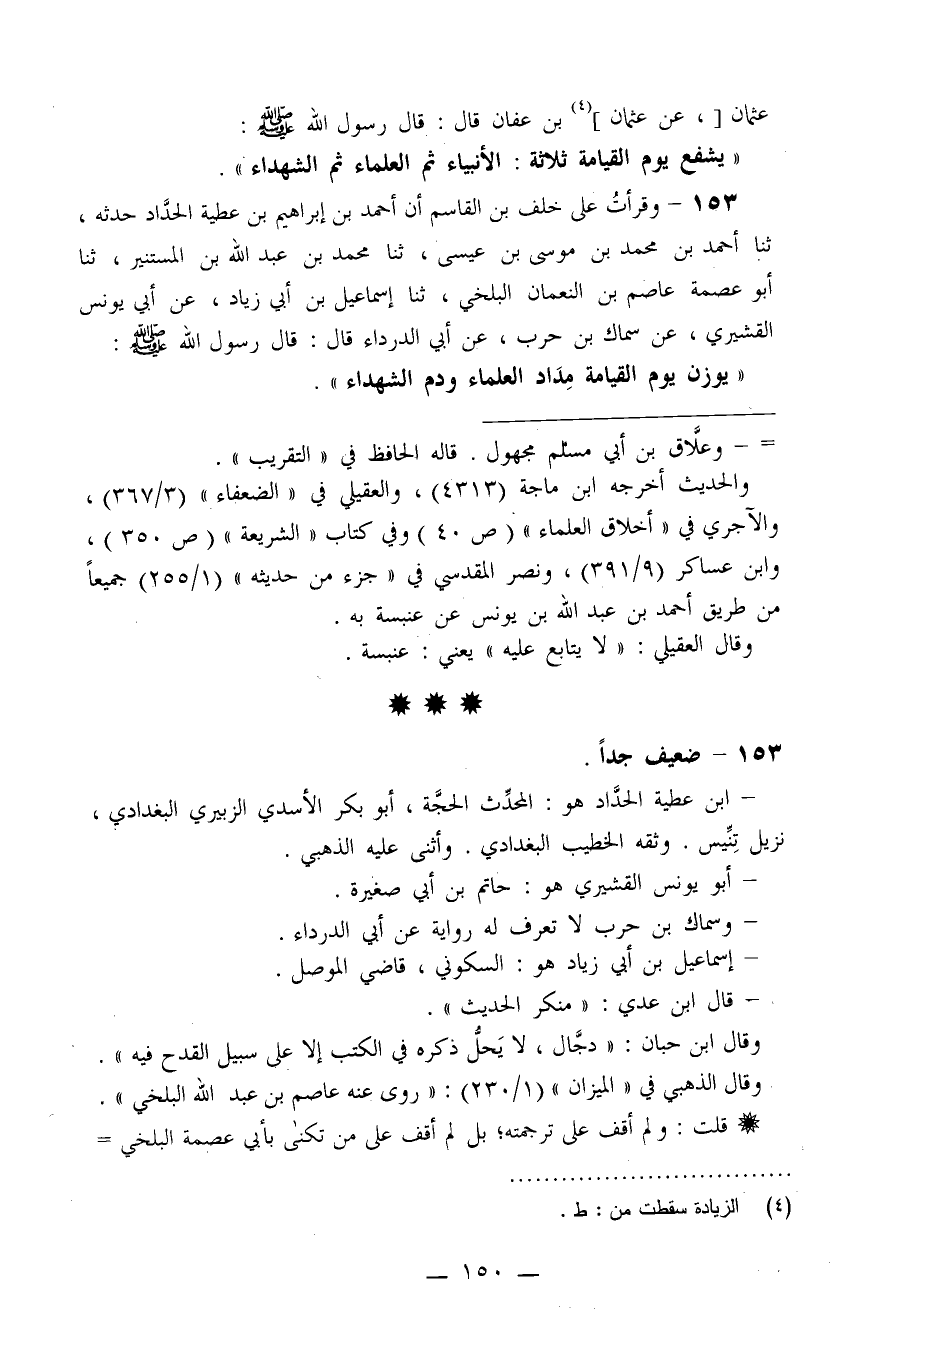 عثمان [ ، عن عثمان ](٤) بن عفان قال : قال رسول الله ﷺ :
« يشفع يوم القيامة ثلاثة : الأنبياء ثم العلماء ثم الشهداء » .
١٥٣ – وقرأتُ على خلف بن القاسم أن أحمد بن إبراهيم بن عطية الحدَّاد حدثه ،
ثنا أحمد بن محمد بن موسى بن عيسى ، ثنا محمد بن عبد الله بن المستنير ، ثنا
أبو عصمة عاصم بن النعمان البلخي ، ثنا إسماعيل بن أبي زياد ، عن أبي يونس
القشيري ، عن سماك بن حرب ، عن أبي الدرداء قال : قال رسول الله ﷺ :
« يوزن يوم القيامة مِدَاد العلماء ودم الشهداء » .
= – وعلَّاق بن أبي مسلم مجهول . قاله الحافظ في « التقريب » .
والحديث أخرجه ابن ماجة (٤٣١٣) ، والعقيلي في « الضعفاء » (٣٦٧/٣) ،
والآجري في « أخلاق العلماء » ( ص ٤٠ ) وفي كتاب « الشريعة » ( ص ٣٥٠ ) ،
وابن عساكر (٣٩١/٩) ، ونصر المقدسي في « جزء من حديثه » (٢٥٥/١) جميعاً
من طريق أحمد بن عبد الله بن يونس عن عنبسة به .
وقال العقيلي : « لا يتابع عليه » يعني : عنبسة .
١٥٣ – ضعيف جداً .
– ابن عطية الحدَّاد هو : المحدِّث الحجَّة ، أبو بكر الأسدي الزبيري البغدادي ،
نزيل تِنِّيس . وثقه الخطيب البغدادي . وأثنى عليه الذهبي .
– أبو يونس القشيري هو : حاتم بن أبي صغيرة .
– وسماك بن حرب لا تعرف له رواية عن أبي الدرداء .
– إسماعيل بن أبي زياد هو : السكوني ، قاضي الموصل .
– قال ابن عدي : « منكر الحديث » .
وقال ابن حبان : « دجَّال ، لا يَحلُّ ذكره في الكتب إلا على سبيل القدح فيه » .
وقال الذهبي في « الميزان » (٢٣٠/١) : « روى عنه عاصم بن عبد الله البلخي » .
قلت : ولم أقف على ترجمته؛ بل لم أقف على من تكنىٰ بأبي عصمة البلخي =
(٤) الزيادة سقطت من : ط .
– ١٥٠ –